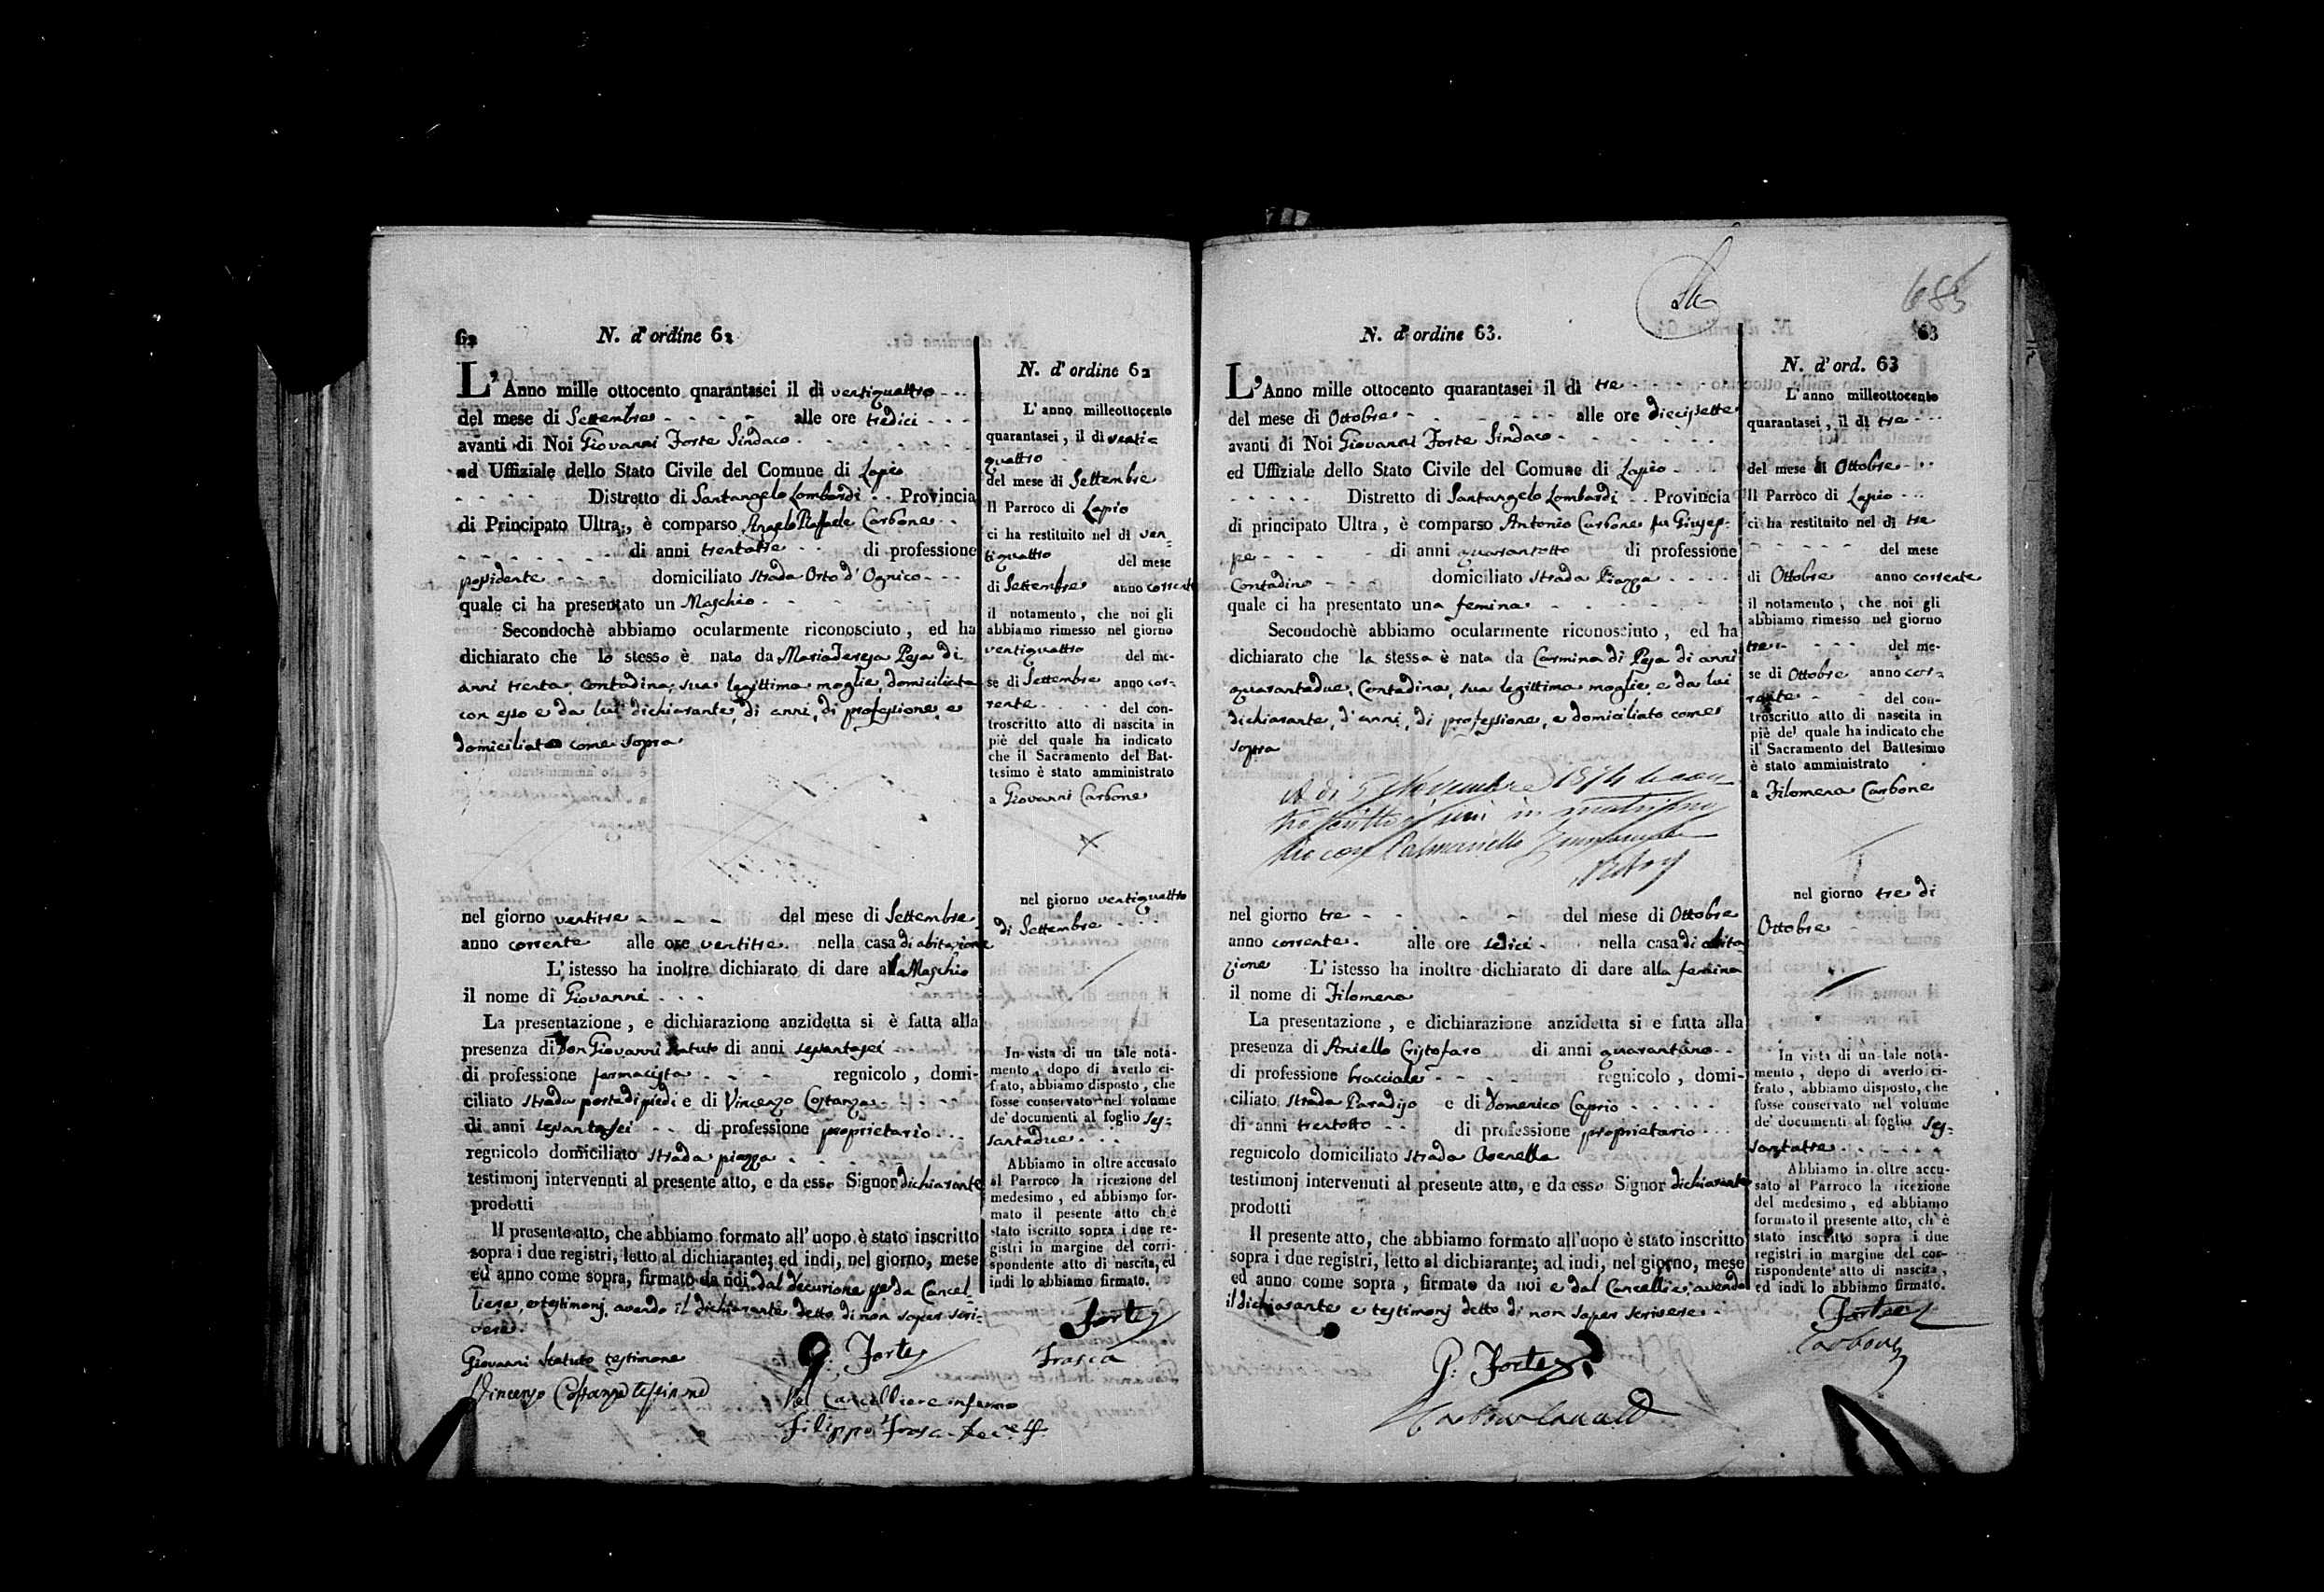 62
N. d'ordine 62
L'Anno mille ottocento quarantasei il dì ventiquattro
del mese di Settembre alle ore tredici
avanti di Noi Giovanni Forte Sindaco
ed Uffiziale dello Stato Civile del Comune di Lapio
Distretto di Santangelo Lombardi Provincia
di Principato Ultra, è comparso Angelo Raffaele Carbone
di anni trentatre di professione
possidente domiciliato strada Orto d'Ognico
quale ci ha presentato un Maschio
Secondochè abbiamo ocularmente riconosciuto, ed ha
dichiarato che lo stesso è nato da Maria Teresa Pesa di
anni trenta, contadina, sua legittima moglie, domiciliata
con esso e da lui dichiarante, di anni, di professione, e
domiciliato come sopra
nel giorno ventitre del mese di Settembre
anno corrente alle ore ventitre nella casa di abitazione
L'istesso ha inoltre dichiarato di dare al Maschio
il nome di Giovanni
La presentazione, e dichiarazione anzidetta si è fatta alla
presenza di Don Giovanni Statuto di anni sessantasei
di professione farmacista regnicolo, domi-
ciliato strada porta di piedi e di Vincenzo Costanza
di anni sessantasei di professione proprietario
regnicolo domiciliato strada piazza
testimonj intervenuti al presente atto, e da esso Signor dichiarante
prodotti
Il presente atto, che abbiamo formato all'uopo è stato inscritto
sopra i due registri, letto al dichiarante; ed indi, nel giorno, mese
ed anno come sopra, firmato da noi dal decurione da Cancel-
liere, e testimonj, avendo il dichiarante detto di non saper scri-
vere.
Giovanni Statuto testimone
Vincenzo Costanza testimone
G. Forte
Pel Cancelliere infermo
Filippo Frasca
N. d'ordine 62
L'anno milleottocento
quarantasei, il dì venti=
quattro
del mese di Settembre
Il Parroco di Lapio
ci ha restituito nel dì ven=
tiquattro del mese
di Settembre anno corrente
il notamento, che noi gli
abbiamo rimesso nel giorno
ventiquattro del me-
se di Settembre anno cor=
rente del con-
troscritto atto di nascita in
piè del quale ha indicato
che il Sacramento del Bat-
tesimo è stato amministrato
a Giovanni Carbone
nel giorno ventiquattro
di Settembre
In vista di un tale nota-
mento, dopo di averlo ci-
frato, abbiamo disposto, che
fosse conservato nel volume
de' documenti al foglio ses=
santadue
Abbiamo in oltre accusato
al Parroco la ricezione del
medesimo, ed abbiamo for-
mato il pesente atto ch'è
stato iscritto sopra i due re-
gistri in margine del corri-
spondente atto di nascita, ed
indi lo abbiamo firmato.
Forte
Frasca
685
63
N. d'ordine 63.
L'Anno mille ottocento quarantasei il dì tre
del mese di Ottobre alle ore diecisette
avanti di Noi Giovanni Forte Sindaco
ed Uffiziale dello Stato Civile del Comune di Lapio
Distretto di Santangelo Lombardi Provincia
di principato Ultra, è comparso Antonio Carbone fu Giusep=
pe di anni quarantotto di professione
Contadino domiciliato strada Piazza
quale ci ha presentato una femina
Secondochè abbiamo ocularmente riconosciuto, ed ha
dichiarato che la stessa è nata da Carmina di Pesa di anni
quarantadue, Contadina, sua legittima moglie e da lui
dichiarante, d'anni, di professione, e domiciliato come
sopra
A dì 5 Novembre 1874 la con
tro scritta si unì in matrimo
nio con Palmariello
nel giorno tre del mese di Ottobre
anno corrente alle ore sedici nella casa di abita
zione L'istesso ha inoltre dichiarato di dare alla femina
il nome di Filomena
La presentazione, e dichiarazione anzidetta si e fatta alla
presenza di Aniello Cristofaro di anni quarantuno
di professione bracciale regnicolo, domi-
ciliato strada Paradiso e di Domenico Caprio
di anni trentotto di professione proprietario
regnicolo domiciliato strada Arenella
testimonj intervenuti al presente atto, e da esso Signor dichiarante
prodotti
Il presente atto, che abbiamo formato all'uopo è stato inscritto
sopra i due registri, letto al dichiarante; ad indi, nel giorno, mese
ed anno come sopra, firmato da noi e dal Cancelliere, avendo
il dichiarante e testimonj detto di non saper scrivere
G: Forte
N. d'ord. 63
L'anno milleottocento
quarantasei, il dì tre
del mese di Ottobre
Il Parroco di Lapio
ci ha restituito nel dì tre
del mese
di Ottobre anno corrente
il notamento, che noi gli
abbiamo rimesso nel giorno
tre del me-
se di Ottobre anno cor=
rente del con-
troscritto atto di nascita in
piè del quale ha indicato che
il Sacramento del Battesimo
è stato amministrato
a Filomena Carbone
nel giorno tre di
Ottobre
In vista di un tale nota-
mento, dopo di averlo ci-
frato, abbiamo disposto, che
fosse conservato nel volume
de' documenti al foglio ses=
santatre
Abbiamo in oltre accu-
sato al Parroco la ricezione
del medesimo, ed abbiamo
formato il presente atto, ch'è
stato inscritto sopra i due
registri in margine del cor-
rispondente atto di nascita,
ed indi lo abbiamo firmato.
Forte
Carbone